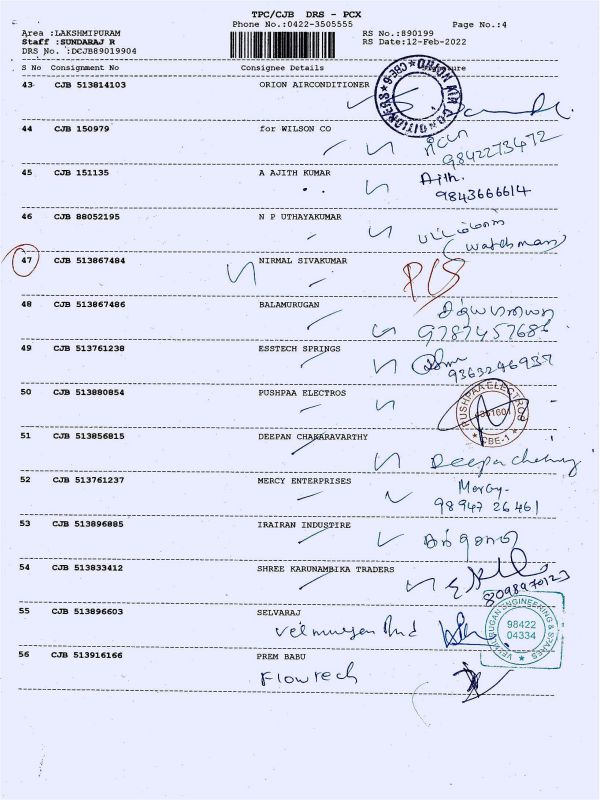 TPC/CJB DRS - PCX
Phone No.:0422-3505555
Page No.:4
Area :LAKSHMIPURAM
RS No.:890199
Staff :SUNDARAJ R
RS Date:12-Feb-2022
DRS No. :DCJB89019904
S No Consignment No Consignee Details
43 CJB 513814103 ORION AIRCONDITIONER
ORION AIR CONDITIONERS CBE-6
44 CJB 150979 for WILSON CO
9842273472
45 CJB 151135 A AJITH KUMAR
Ajth.
9843666614
46 CJB 88052195 N P UTHAYAKUMAR
(watchman)
47 CJB 513867484 NIRMAL SIVAKUMAR
48 CJB 513867486 BALAMURUGAN
9787457686
49 CJB 513761238 ESSTECH SPRINGS
9363246937
50 CJB 513880854 PUSHPAA ELECTROS
PUSHPAA ELECTROS CBE-1
51 CJB 513856815 DEEPAN CHAKARAVARTHY
52 CJB 513761237 MERCY ENTERPRISES
Mercy.
98947 26461
53 CJB 513896885 IRAIRAN INDUSTIRE
54 CJB 513833412 SHREE KARUNAMBIKA TRADERS
8098970123
55 CJB 513896603 SELVARAJ
VELMURUGAN ENGINEERING & SPARES
98422
04334
56 CJB 513916166 PREM BABU
Flowtech